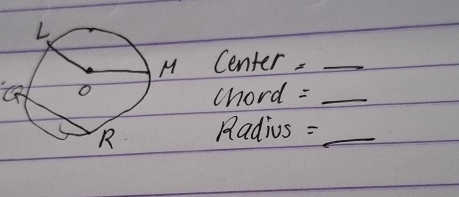 L
M
O
Q
R
Center = __
chord = __
Radius = __